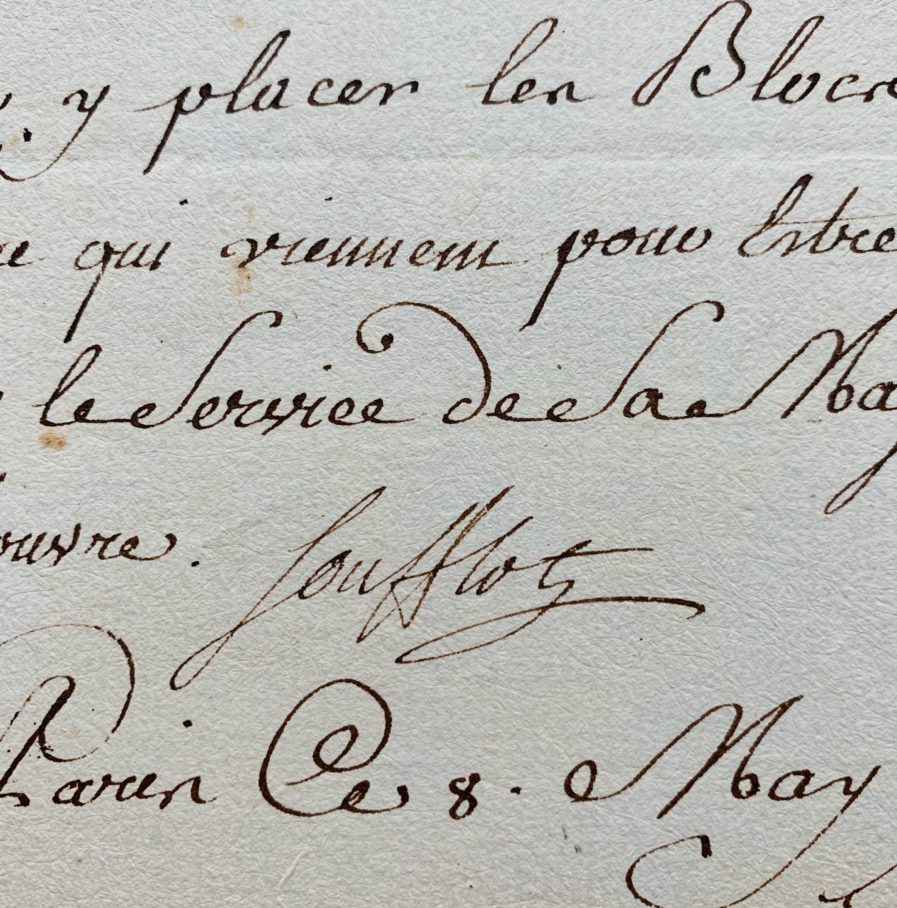 y placer les Blocs
qui viennent pour Estre
le Service de Sa Maj
ouvre.
Soufflot
Paris Ce 8. May